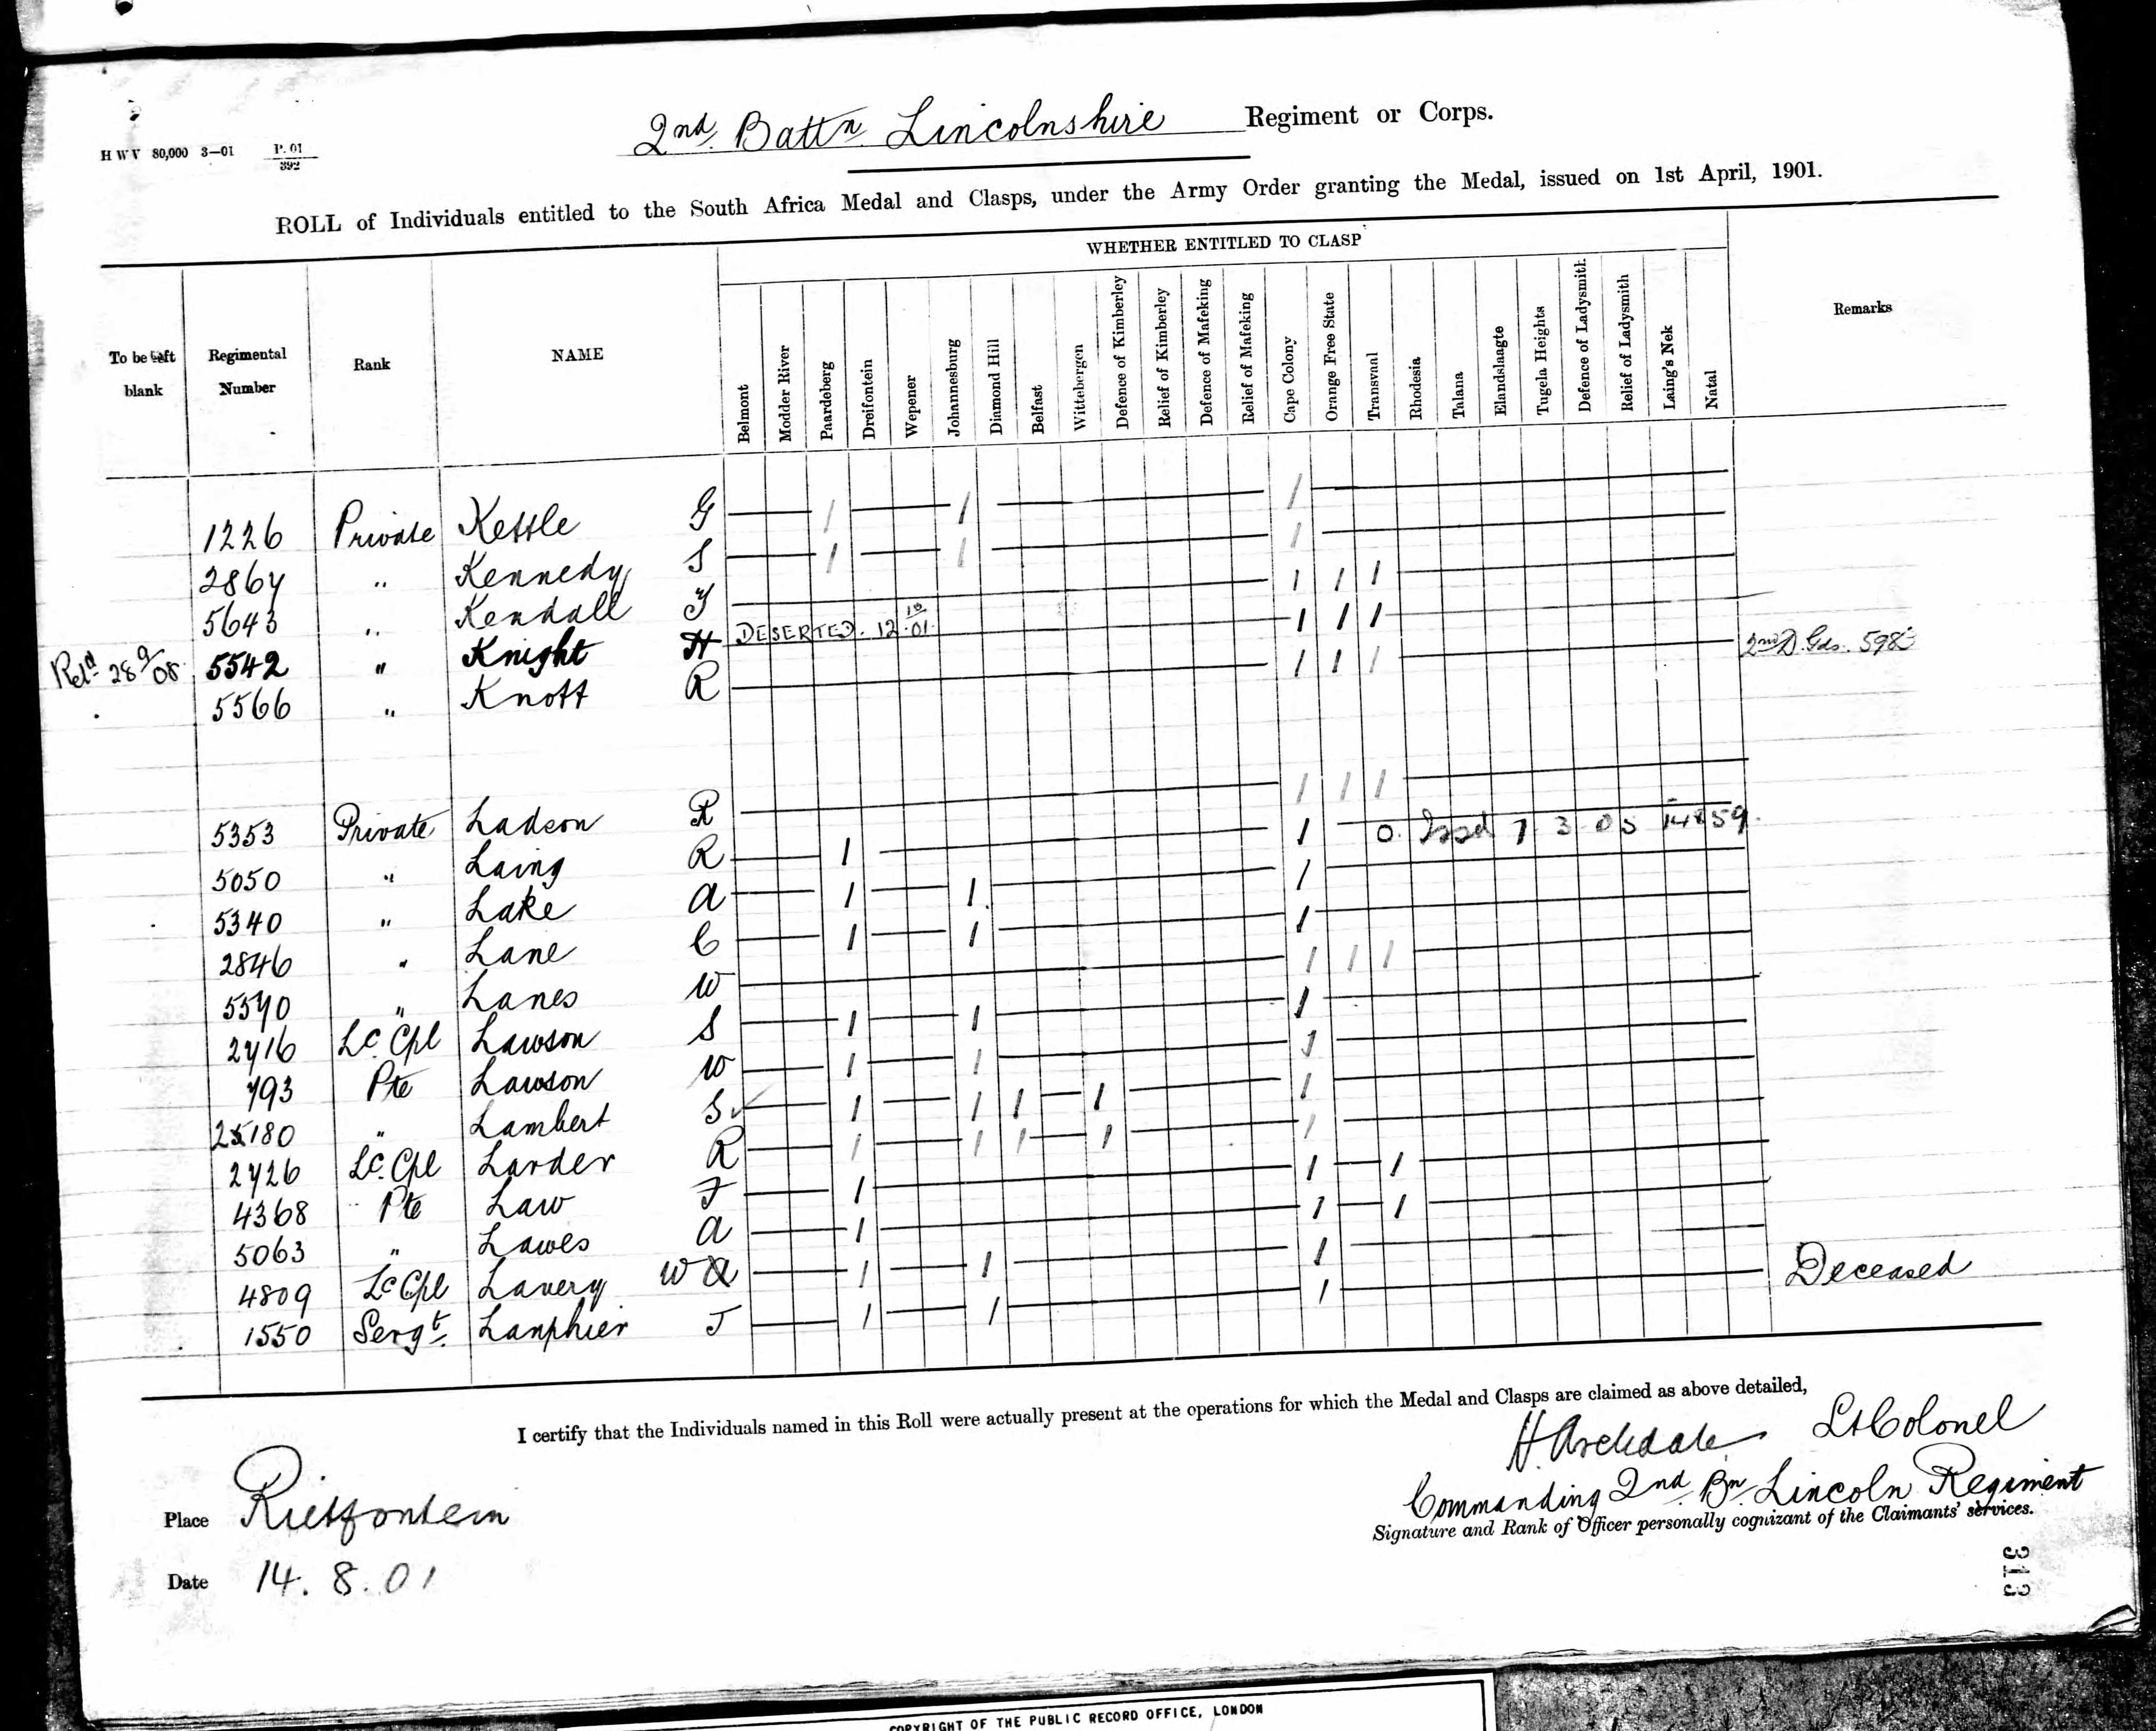 2nd. Battn Lincolnshire Regiment or Corps.
H W V 80,000 3—01 P. 01 / 392
ROLL of Individuals entitled to the South Africa Medal and Clasps, under the Army Order granting the Medal, issued on 1st April, 1901.
WHETHER ENTITLED TO CLASP
To be left blank
Regimental Number
Rank
NAME
Belmont
Modder River
Paardeberg
Dreifontein
Wepener
Johannesburg
Diamond Hill
Belfast
Wittebergen
Defence of Kimberley
Relief of Kimberley
Defence of Mafeking
Relief of Mafeking
Cape Colony
Orange Free State
Transvaal
Rhodesia
Talana
Elandslaagte
Tugela Heights
Defence of Ladysmith
Relief of Ladysmith
Laing's Nek
Natal
Remarks
1226 Private Kettle G 1 1 1
2864 " Kennedy S 1 1 1
5643 " Kendall J 1 1 1
Retd 28/9/08 5542 " Knight H DESERTED. 12.10.01. 1 1 1 2nd D. Gds. 598
5566 " Knott R 1 1 1
5353 Private Ladson R 1 1 1
5050 " Laing R 1 1 O. Issd 7 3 05
5340 " Lake A 1 1 1
2846 " Lane C 1 1 1
5590 " Lanes W 1 1 1
2716 Lc. Cpl Lawson S 1 1 1
793 Pte Lawson W 1 1 1
25180 " Lambert S 1 1 1 1 1
2726 Lc. Cpl Larder R 1 1 1 1 1
4368 Pte Law F 1 1 1
5063 " Lawes A 1 1 1
4809 Lc Cpl Lavery W A 1 1 1 Deceased
1550 Sergt. Lanphier J 1 1 1
I certify that the Individuals named in this Roll were actually present at the operations for which the Medal and Clasps are claimed as above detailed,
H. Archdale Lt Colonel
Commanding 2nd Bn. Lincoln Regiment
Signature and Rank of Officer personally cognizant of the Claimants' services.
Place Rietfontein
Date 14. 8. 01
313
COPYRIGHT OF THE PUBLIC RECORD OFFICE, LONDON